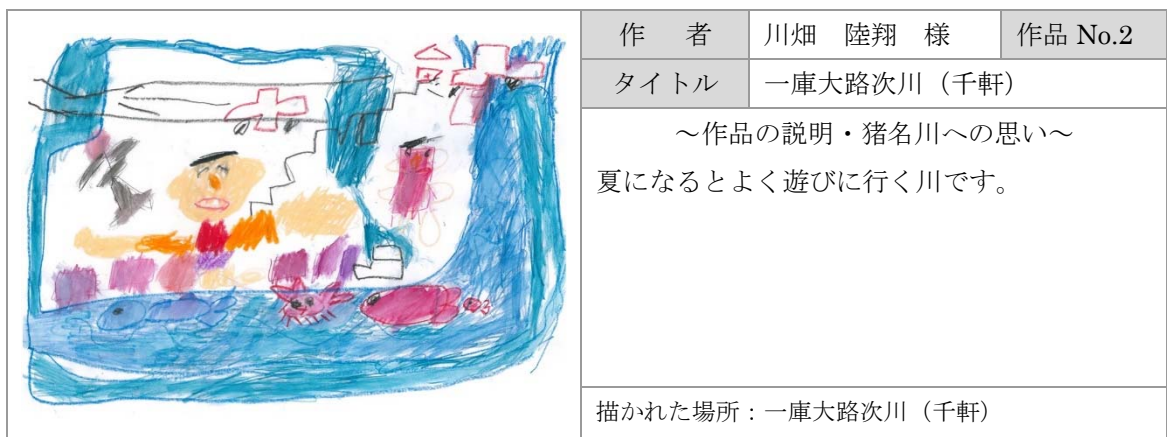 作 者 川畑 陸翔 様 作品 No.2
タイトル 一庫大路次川（千軒）
～作品の説明・猪名川への思い～
夏になるとよく遊びに行く川です。
描かれた場所：一庫大路次川（千軒）